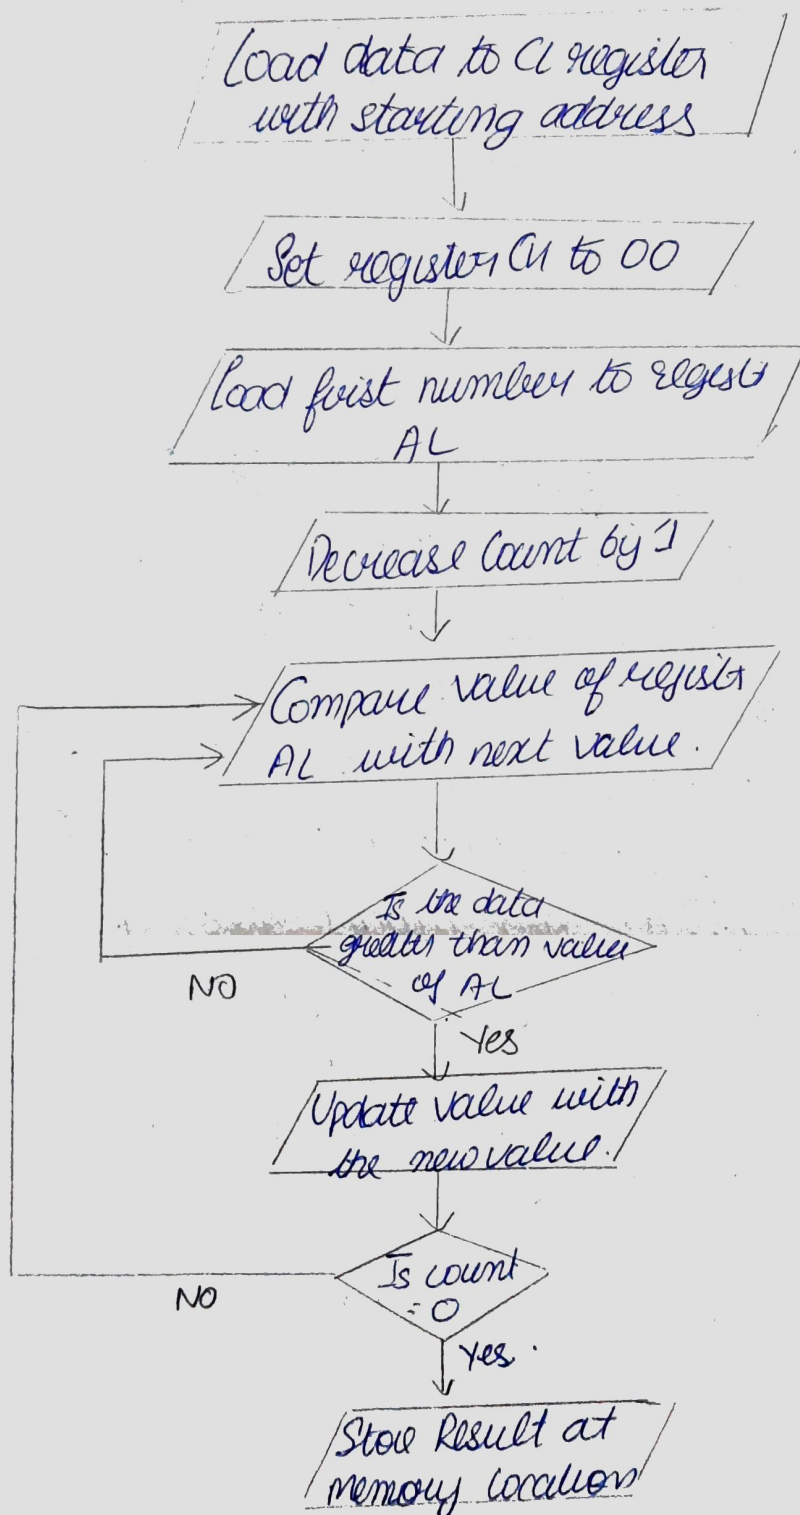 Load data to CL register
with starting address
Set register CH to 00
Load first number to register
AL
Decrease Count by 1
Compare value of register
AL with next value.
Is the data
greater than value
of AL
NO
Yes
Update value with
the new value.
Is count
= 0
NO
Yes.
Store Result at
Memory Location